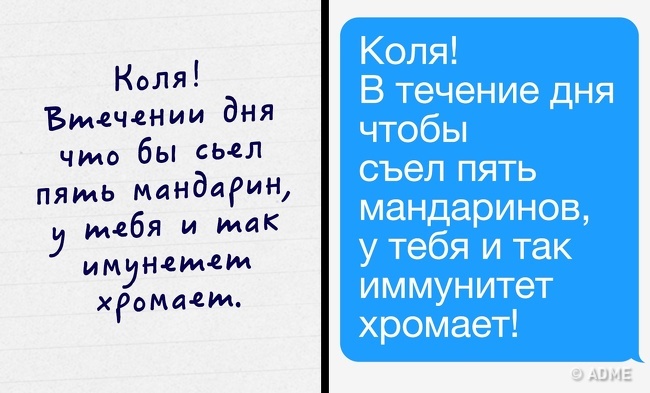 Коля!
Втечении дня
что бы сьел
пять мандарин,
у тебя и так
имунетет
хромает.
Коля!
В течение дня
чтобы
съел пять
мандаринов,
у тебя и так
иммунитет
хромает!
© ADME